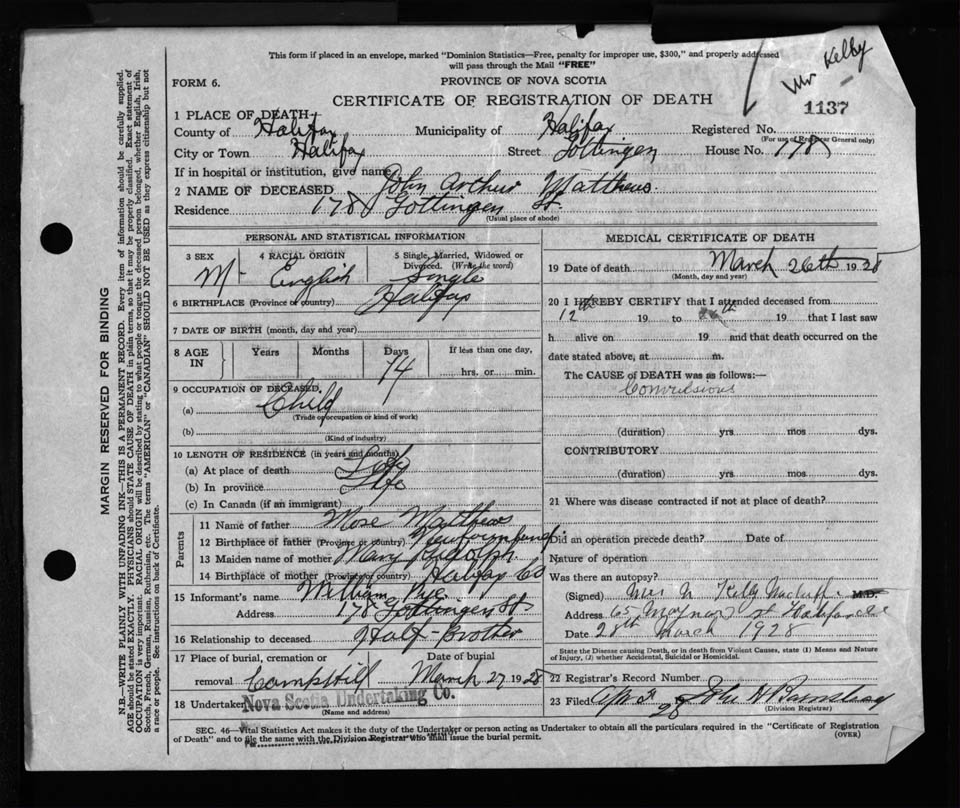 This form if placed in an envelope, marked "Dominion Statistics—Free, penalty for improper use, $300," and properly addressed
will pass through the Mail "FREE"
Mr Kelly
FORM 6.
PROVINCE OF NOVA SCOTIA
CERTIFICATE OF REGISTRATION OF DEATH
1137
1 PLACE OF DEATH
County of Halifax Municipality of Halifax Registered No.
(For use of Registrar General only)
City or Town Halifax Street Gottingen House No. 178
If in hospital or institution, give name
2 NAME OF DECEASED John Arthur Matthews
Residence 178 Gottingen St.
(Usual place of abode)
PERSONAL AND STATISTICAL INFORMATION
3 SEX
M-
4 RACIAL ORIGIN
English
5 Single, Married, Widowed or Divorced. (Write the word)
Single
6 BIRTHPLACE (Province or country) Halifax
7 DATE OF BIRTH (month, day and year)
8 AGE IN
Years Months Days If less than one day,
14 hrs. or min.
9 OCCUPATION OF DECEASED
(a) Child
(Trade or occupation or kind of work)
(b)
(Kind of industry)
10 LENGTH OF RESIDENCE (in years and months)
(a) At place of death Life
(b) In province Life
(c) In Canada (if an immigrant)
Parents
11 Name of father Mose Matthews
12 Birthplace of father (Province or country) Newfoundland
13 Maiden name of mother Mary Rudolph
14 Birthplace of mother (Province or country) Halifax Co
15 Informant's name William Pye
Address 178 Gottingen St
16 Relationship to deceased Half-Brother
17 Place of burial, cremation or Date of burial
removal Camp Hill March 27 1928
18 Undertaker Nova Scotia Undertaking Co.
(Name and address)
MEDICAL CERTIFICATE OF DEATH
19 Date of death March 26th 1928
(Month, day and year)
20 I HEREBY CERTIFY that I attended deceased from
12th 19 to 26th 19 that I last saw
h alive on 19 and that death occurred on the
date stated above, at m.
The CAUSE of DEATH was as follows:—
Convulsions
(duration) yrs mos dys.
CONTRIBUTORY
(duration) yrs mos dys.
21 Where was disease contracted if not at place of death?
Did an operation precede death? Date of
Nature of operation
Was there an autopsy?
(Signed) Mrs N Kelly M.D.
Address 65 Maynard St Halifax
Date 28th March 1928
State the Disease causing Death, or in death from Violent Causes, state (1) Means and Nature of Injury, (2) whether Accidental, Suicidal or Homicidal.
22 Registrar's Record Number
23 Filed Apr 2 28 John H Barnstead
(Division Registrar)
SEC. 46—Vital Statistics Act makes it the duty of the Undertaker or person acting as Undertaker to obtain all the particulars required in the "Certificate of Registration
of Death" and to file the same with the Division Registrar who shall issue the burial permit.
(OVER)
MARGIN RESERVED FOR BINDING
N.B.—WRITE PLAINLY WITH UNFADING INK—THIS IS A PERMANENT RECORD. Every item of information should be carefully supplied.
AGE should be stated EXACTLY. PHYSICIANS should STATE CAUSE OF DEATH in plain terms, so that it may be properly classified. Exact statement of
OCCUPATION is very important. RACIAL ORIGIN will be described by stating to what people or tongue the deceased person belonged, whether English, Irish,
Scotch, French, German, Russian, Ruthenian, etc. The terms "AMERICAN" or "CANADIAN" SHOULD NOT BE USED as they express citizenship but not
a race or people. See instructions on back of Certificate.